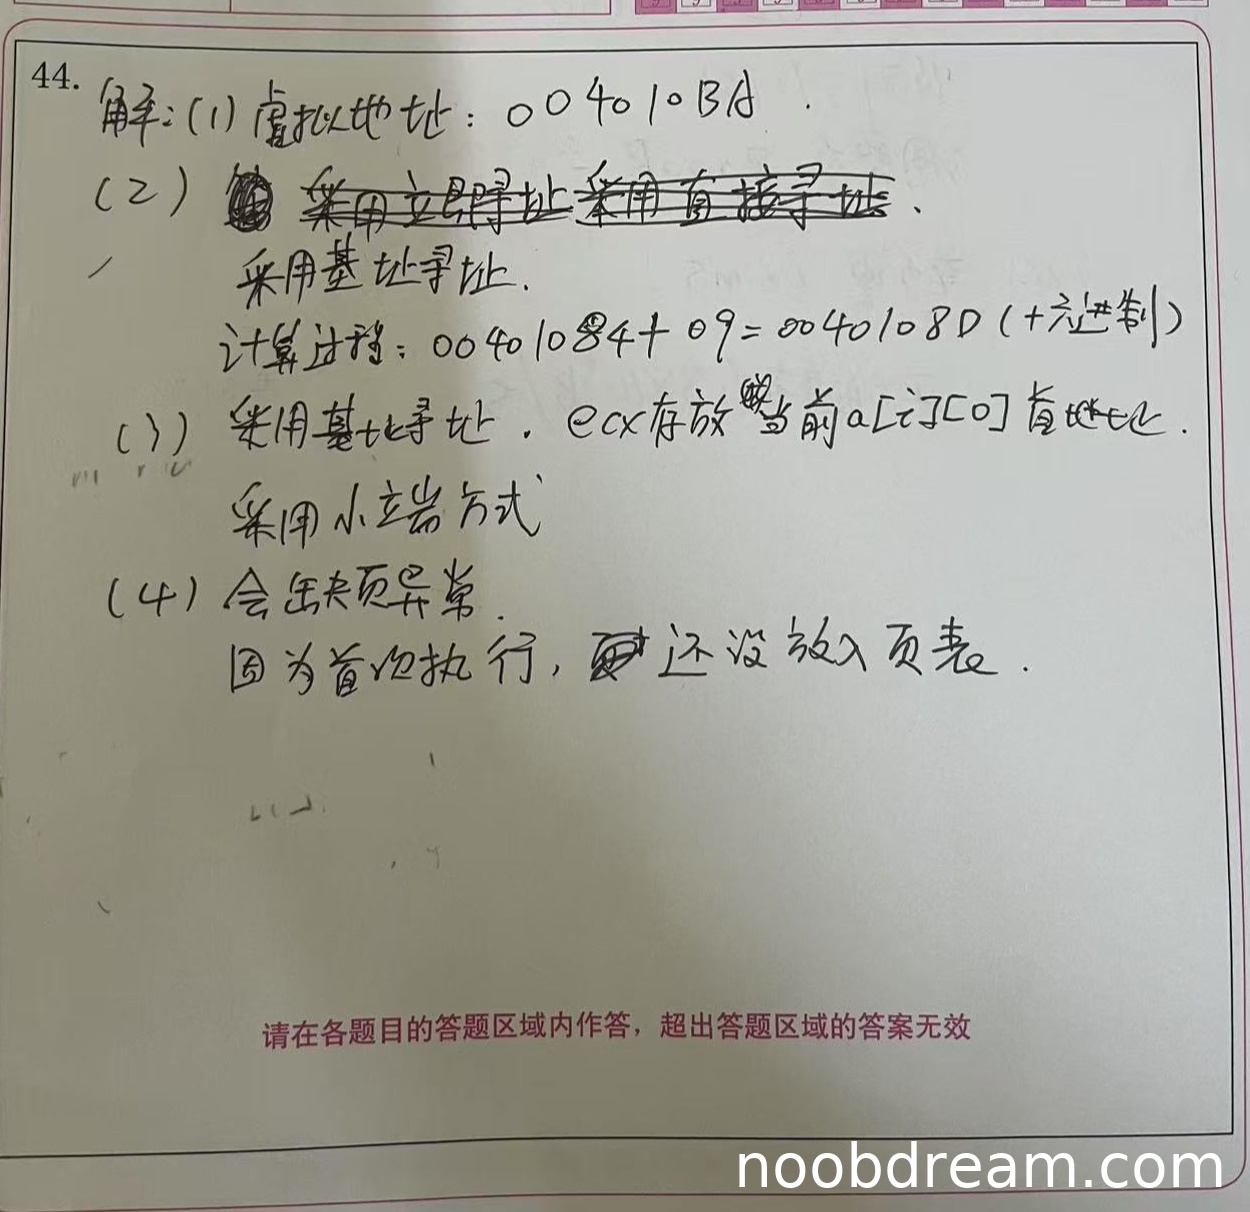 44. 解：(1) 虚拟地址：004010BA .
(2) 采用立即寻址 采用直接寻址 .
采用基址寻址.
计算过程：00401084+09=0040108D (十六进制)
(3) 采用基址寻址. ecx存放当前a[i][0]首地址.
采用小端方式
(4) 会缺页异常.
因为首次执行, 还没放入页表.
请在各题目的答题区域内作答，超出答题区域的答案无效
noobdream.com